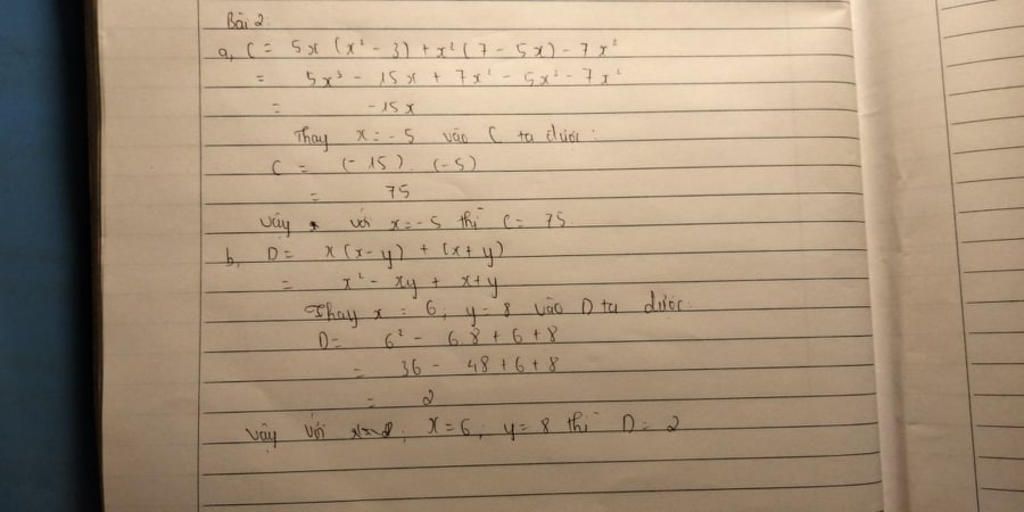 Bài 2.
a, C = 5x (x² - 3) + x² (7 - 5x) - 7x²
= 5x³ - 15x + 7x² - 5x³ - 7x²
= -15x
Thay x = -5 vào C ta được:
C = (-15). (-5)
= 75
Vậy với x = -5 thì C = 75.
b, D = x (x - y) + (x + y)
= x² - xy + x + y
Thay x = 6; y = 8 vào D ta được:
D = 6² - 6.8 + 6 + 8
= 36 - 48 + 6 + 8
= 2
Vậy với x = 6; y = 8 thì D = 2